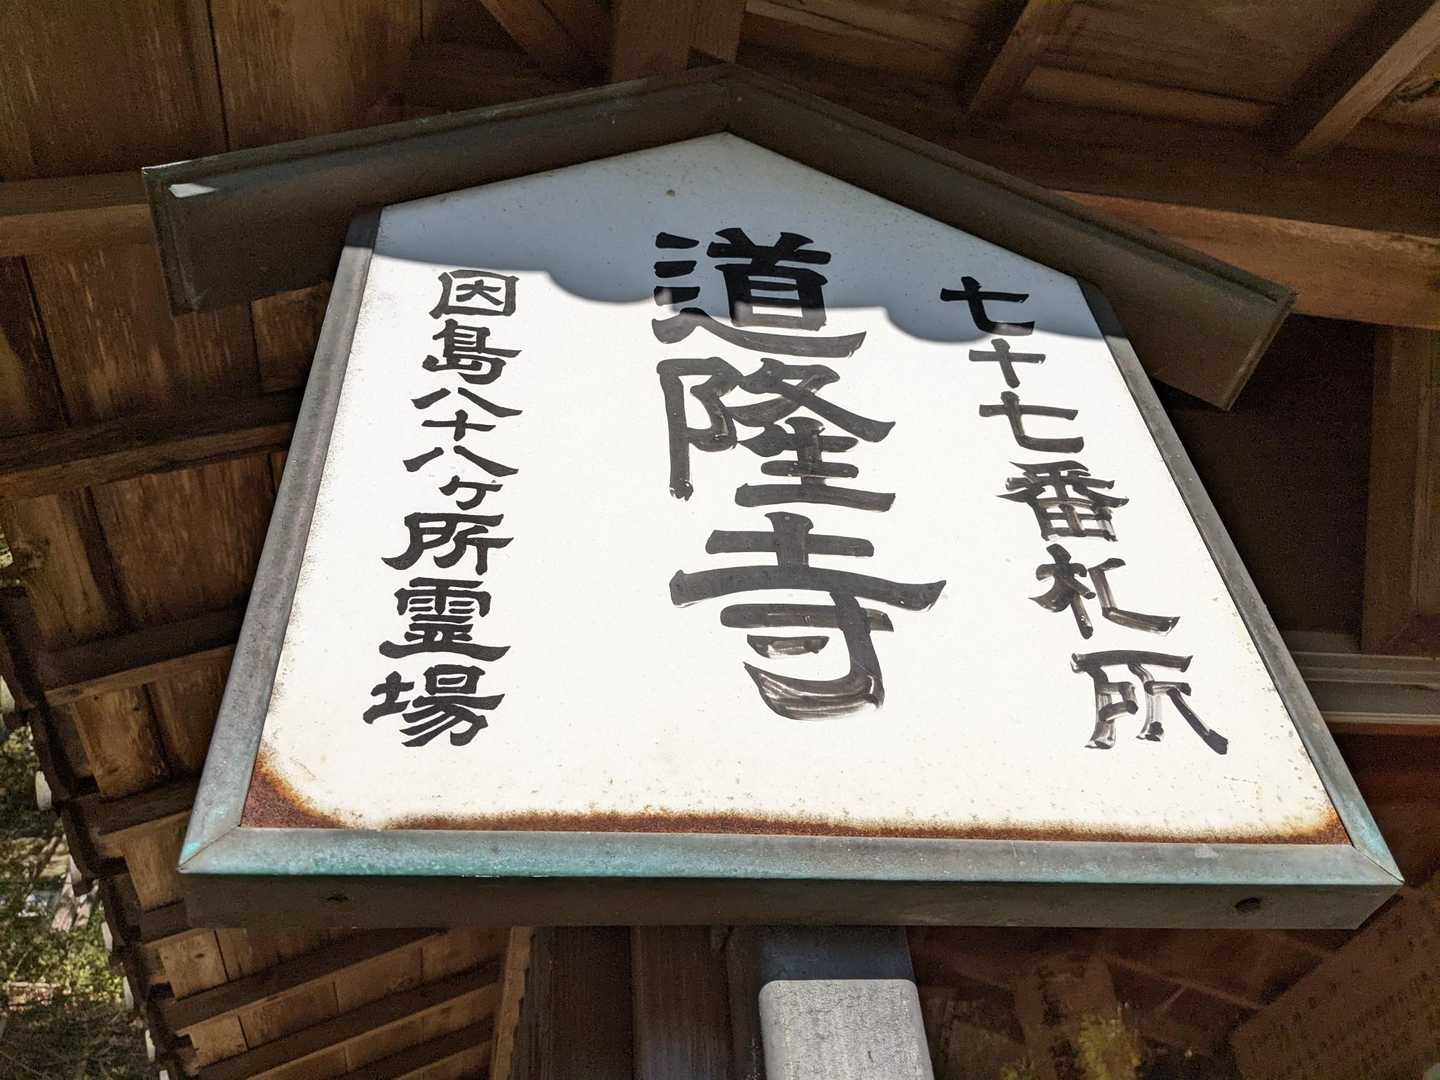 七十七番札所
道隆寺
因島八十八ヶ所霊場